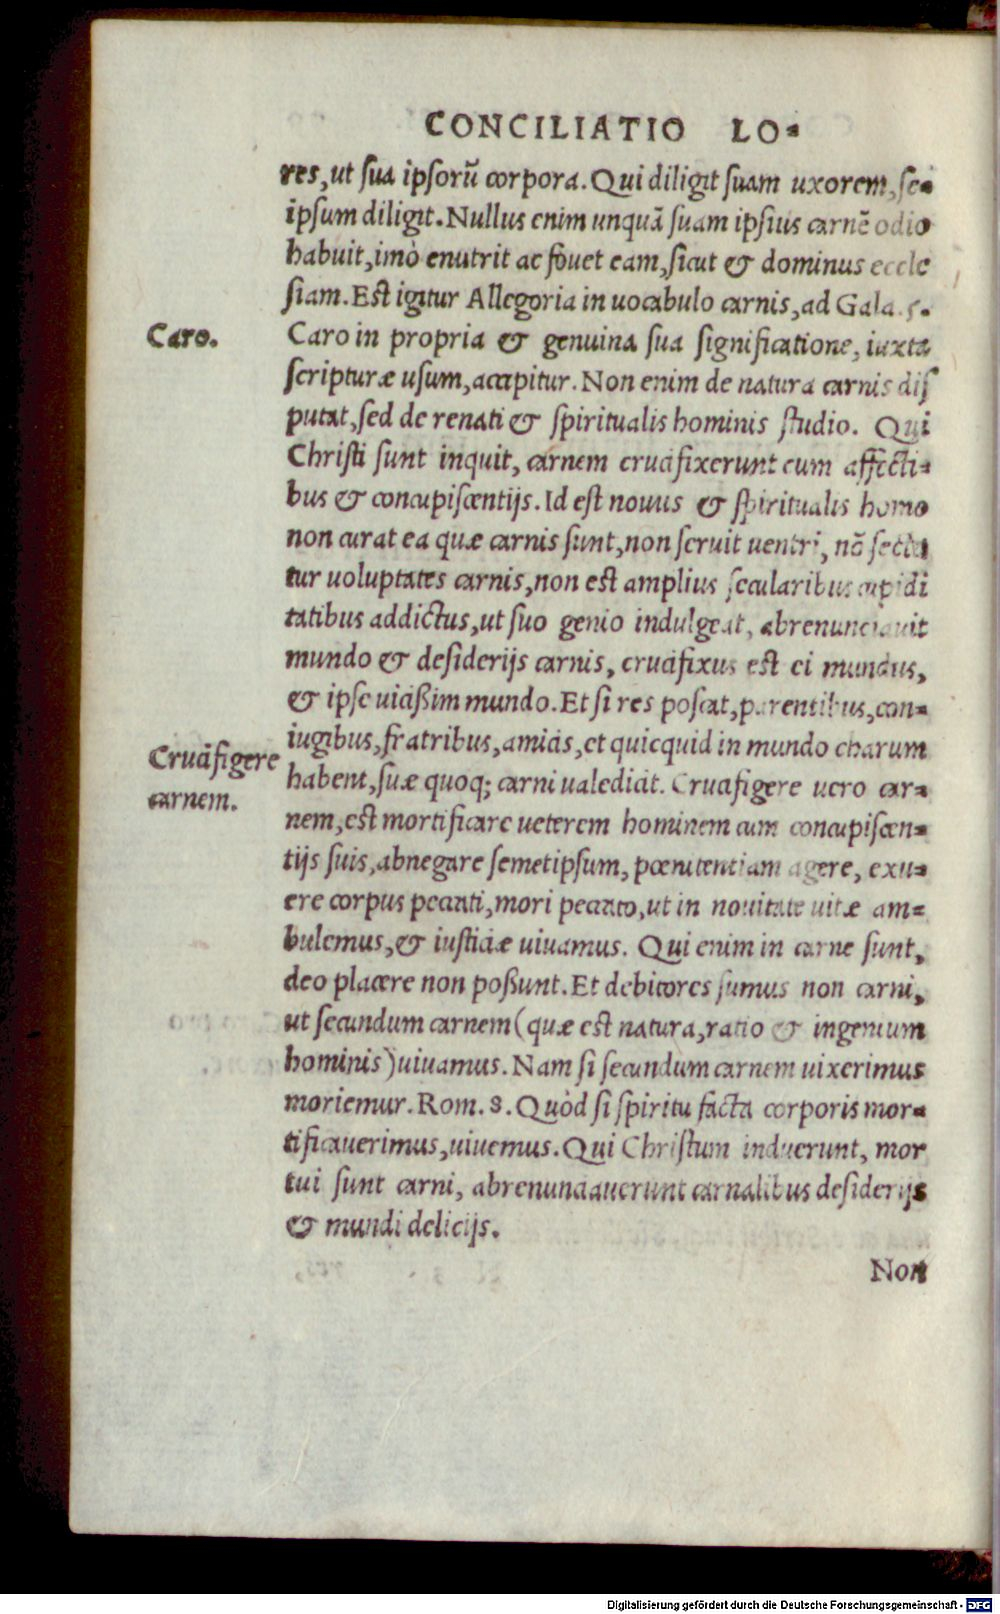 CONCILIATIO LO-
res, ut sua ipsorũ corpora. Qui diligit suam uxorem, se-
ipsum diligit. Nullus enim unquã suam ipsius carnẽ odio
habuit, imò enutrit ac fouet eam, sicut & dominus eccle
siam. Est igitur Allegoria in uocabulo carnis, ad Gala. 5.
Caro.
Caro in propria & genuina sua significatione, iuxta
scripturæ usum, accipitur. Non enim de natura carnis dis
putat, sed de renati & spiritualis hominis studio. Qui
Christi sunt inquit, carnem crucifixerunt cum affecti-
bus & concupiscentijs. Id est nouus & spiritualis homo
non curat ea quæ carnis sunt, non seruit uentri, nõ secta
tur uoluptates carnis, non est amplius secularibus cupidi
tatibus addictus, ut suo genio indulgeat, abrenunciauit
mundo & desiderijs carnis, crucifixus est ei mundus,
& ipse uicißim mundo. Et si res poscat, parentibus, con-
iugibus, fratribus, amicis, et quicquid in mundo charum
Crucifigere
carnem.
habent, suæ quoq; carni ualedicit. Crucifigere uero car-
nem, est mortificare ueterem hominem cum concupiscen-
tijs suis, abnegare semetipsum, pœnitentiam agere, exu-
ere corpus peccati, mori peccato, ut in nouitate uitæ am-
bulemus, & iusticiæ uiuamus. Qui enim in carne sunt,
deo placere non poßunt. Et debitores sumus non carni,
ut secundum carnem (quæ est natura, ratio & ingenium
hominis) uiuamus. Nam si secundum carnem uixerimus
moriemur. Rom. 8. Quòd si spiritu facta corporis mor-
tificauerimus, uiuemus. Qui Christum induerunt, mor
tui sunt carni, abrenunciauerunt carnalibus desiderijs
& mundi delicijs.
Non
Digitalisierung gefördert durch die Deutsche Forschungsgemeinschaft - DFG